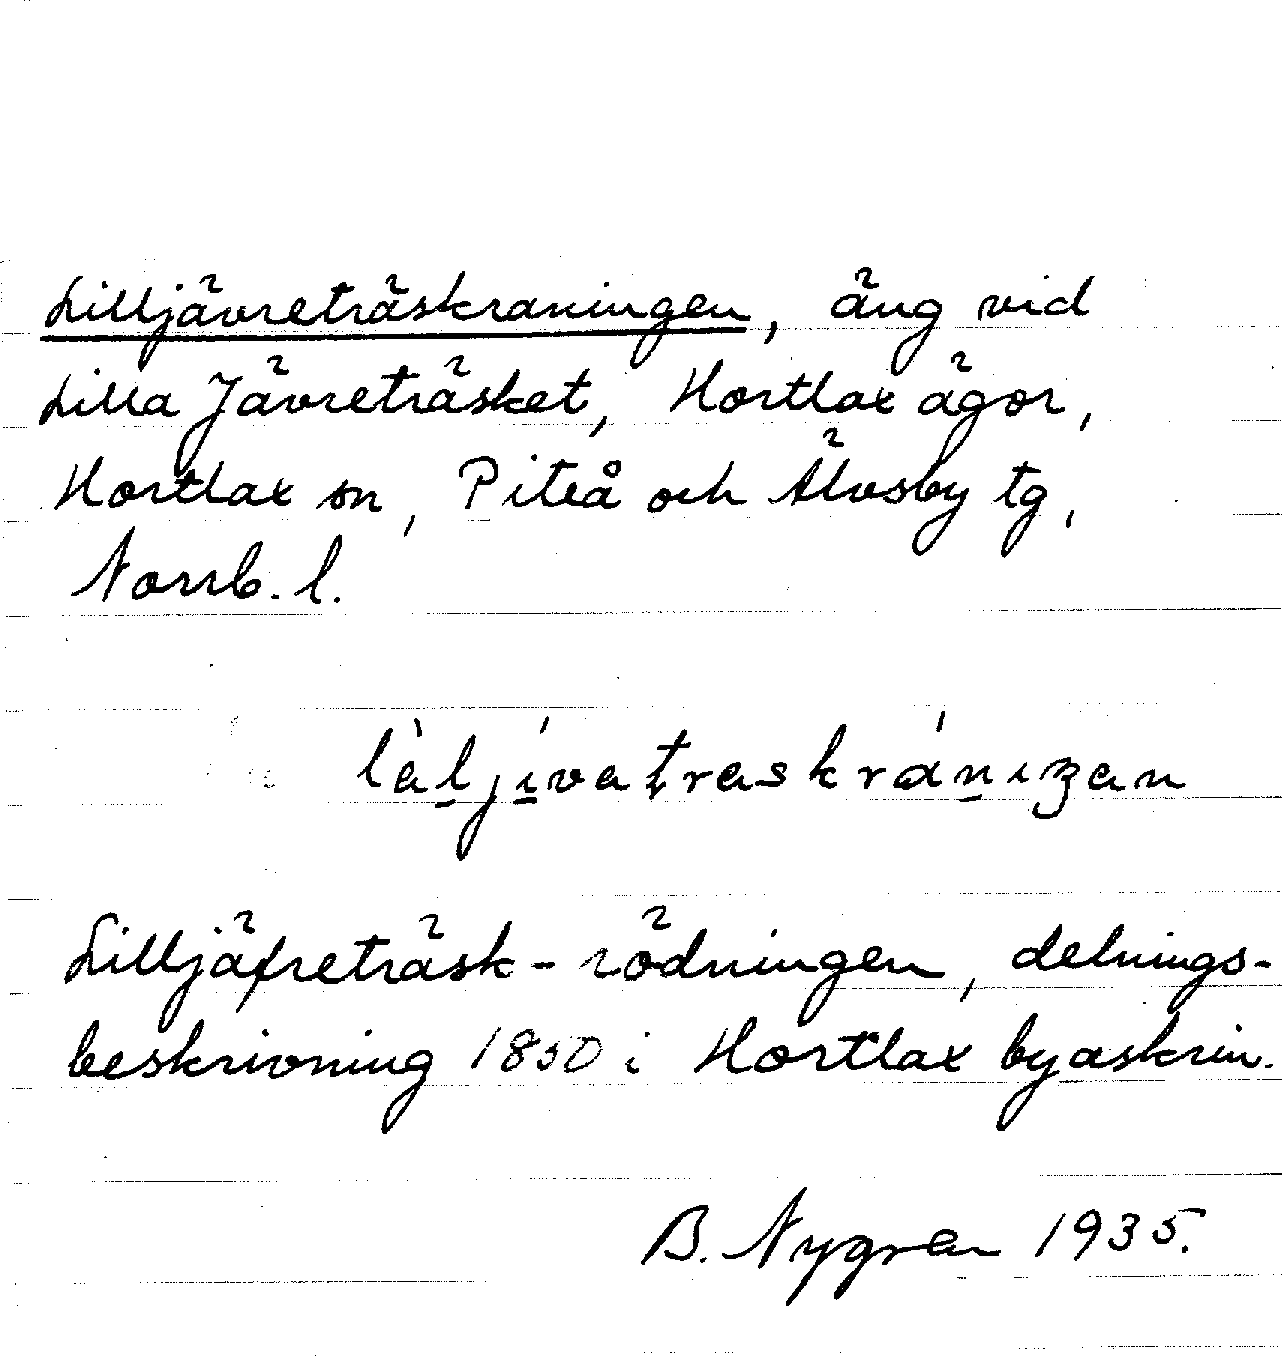 Lilljävreträskraningen, äng vid
Lilla Jävreträsket, Hortlax ägor,
Hortlax sn, Piteå och Älvsby tg,
Norrb. l.
Lilljäfreträsk-rödningen, delnings-
beskrivning 1850 i Hortlax byaskrin.
B. Nygren 1935.